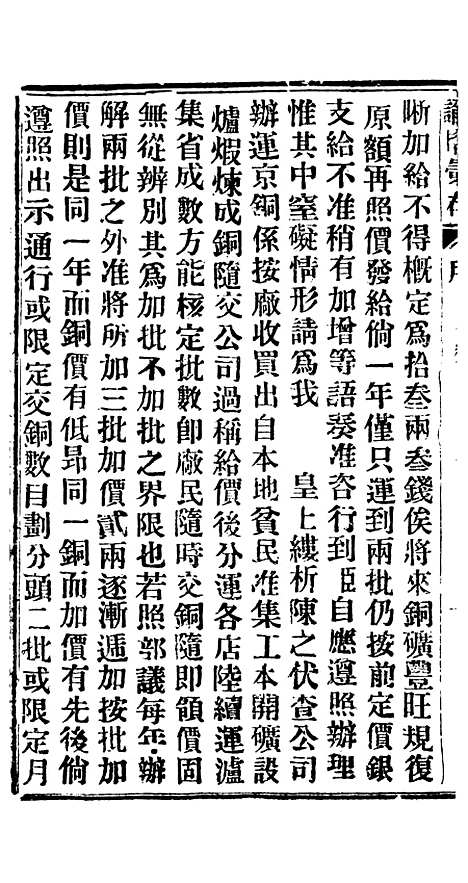 諭摺彙存
晰加給不得槪定爲拾叁兩叁錢俟將來銅礦豐旺規復
原額再照價發給倘一年僅只運到兩批仍按前定價銀
支給不准稍有加增等語奏准咨行到臣自應遵照辦理
惟其中窒礙情形請爲我　皇上縷析陳之伏查公司
辦運京銅係按廠收買出自本地貧民准集工本開礦設
爐煆煉成銅隨交公司過稱給價後分運各店陸續運瀘
集省成數方能核定批數卽廠民隨時交銅隨卽領價固
無從辨別其爲加批不加批之界限也若照部議每年辦
解兩批之外准將所加三批加價貳兩逐漸遞加按批加
價則是同一年而銅價有低昻同一銅而加價有先後倘
遵照出示通行或限定交銅數目劃分頭二批或限定月